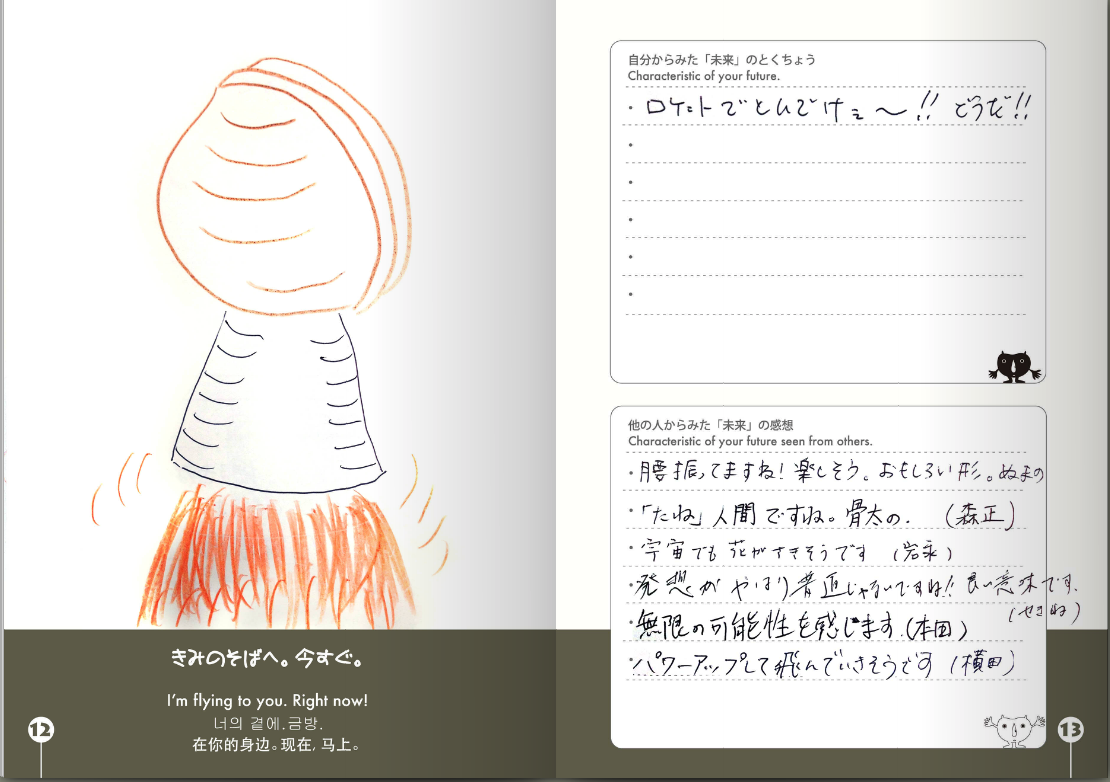 きみのそばへ。今すぐ。
I'm flying to you. Right now!
너의 곁에.금방.
在你的身边。现在, 马上。
12
自分からみた「未来」のとくちょう
Characteristic of your future.
・ロケットでとんでけぇ〜!! どうだ!!
他の人からみた「未来」の感想
Characteristic of your future seen from others.
・腰振ってますね! 楽しそう。おもしろい形。ぬまの
・「たね」人間ですね。骨太の. (森正)
・宇宙でも花がさきそうです (岩永)
・発想がやはり普通じゃないですね!! 良い意味です.
(せきね)
・無限の可能性を感じます (本田)
・パワーアップして飛んでいきそうです (横田)
13